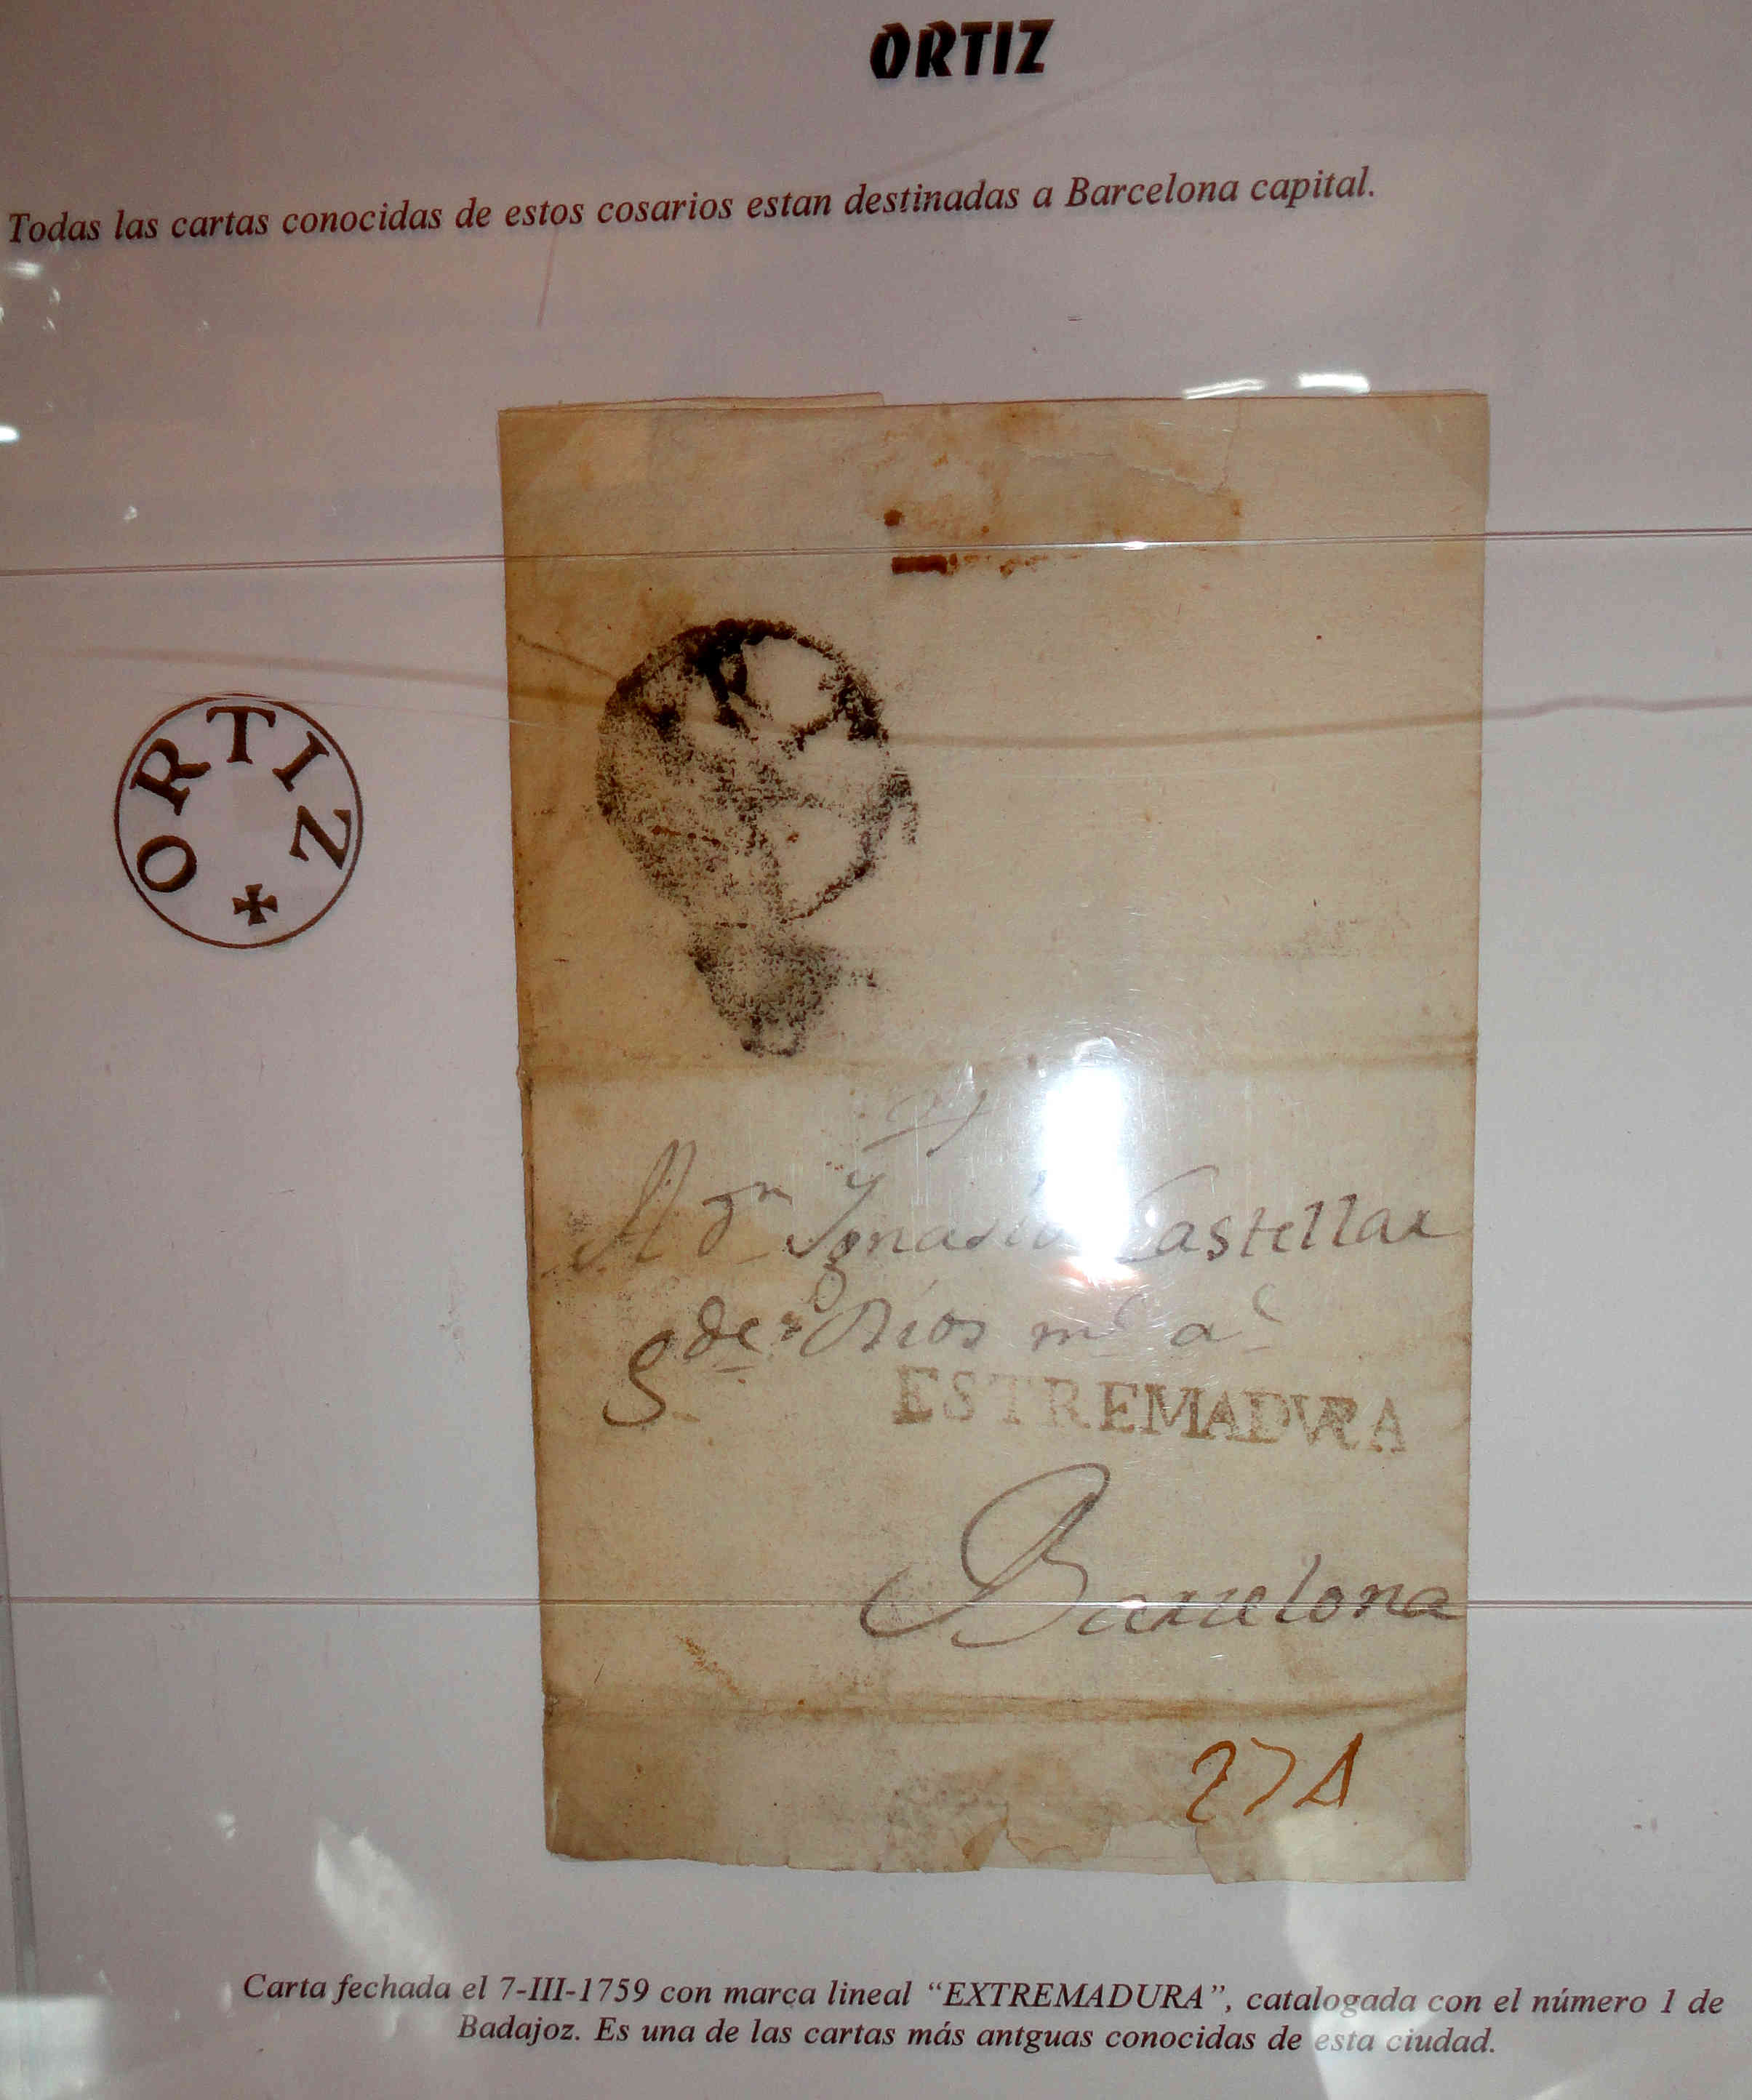 ORTIZ
Todas las cartas conocidas de estos cosarios estan destinadas a Barcelona capital.
ORTIZ
Castellar
de Dios m a
S
ESTREMADVRA
Barcelona
27
Carta fechada el 7-III-1759 con marca lineal “EXTREMADURA”, catalogada con el número 1 de
Badajoz. Es una de las cartas más antguas conocidas de esta ciudad.